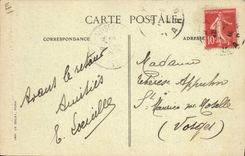 CARTE POSTALE
CORRESPONDANCE
ADRESSE
10
Avant le retour
Amitiés
E. Loeville
Madame
Thérèse Appuhn
St Maurice sur Moselle
(Vosges)